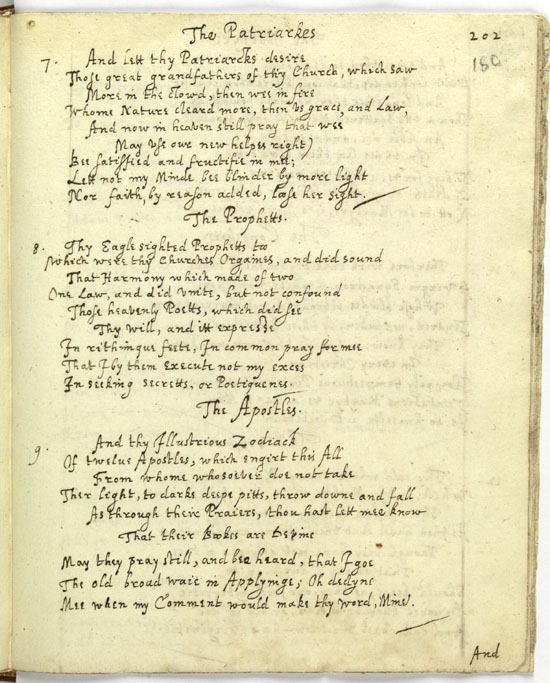 The Patriarkes
202
180
7. And lett thy Patriarcks desire
Those great grandfathers of thy Church, which saw
More in the clowd, then wee in fire
Whome Nature cleard more, then us grace, and Law,
And now in heaven still pray that wee
May use our new helpes right)
Bee satisfied and fructifie in mee;
Lett not my Minde bee blinder by more light
Nor faith, by reason added, loose her sight.
The Prophetts.
8. Thy Eagle sighted Prophetts too
Which were thy Churches Organes, and did sound
That Harmony which made of two
One Law, and did unite, but not confound
Those heavenly Poetts, which did see
Thy will, and itt expresse
In rithmique feete, In common pray for mee
That I by them Execute not my exces
In seeking secretts, or Poetiquenes.
The Apostles.
9. And thy Illustrious Zodiack
Of twelve Apostles, which engirt this All
From whome whosoever doe not take
Ther light, to darke deepe pitts, throw downe and fall
As through their Praiers, thou hast lett mee know
That their Bookes are devine
May they pray still, and bee heard, that I goe
The old broad waie in Applyinge; Oh declyne
Mee when my Comment would make thy word, Mine.
And